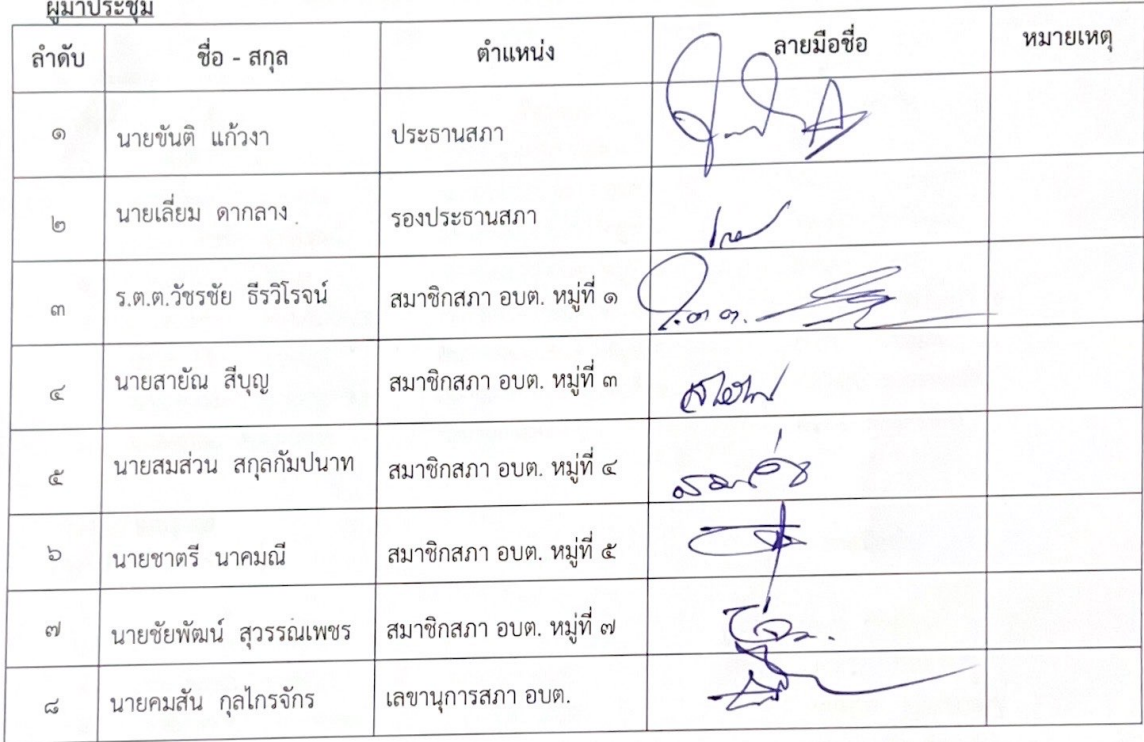 ผู้มาประชุม
ลำดับ ชื่อ - สกุล ตำแหน่ง ลายมือชื่อ หมายเหตุ
๑ นายขันติ แก้วงา ประธานสภา
๒ นายเลี่ยม ดากลาง รองประธานสภา
๓ ร.ต.ต.วัชรชัย ธีรวิโรจน์ สมาชิกสภา อบต. หมู่ที่ ๑ ร.ต.ต.
๔ นายสายัณ สีบุญ สมาชิกสภา อบต. หมู่ที่ ๓
๕ นายสมส่วน สกุลกัมปนาท สมาชิกสภา อบต. หมู่ที่ ๔
๖ นายชาตรี นาคมณี สมาชิกสภา อบต. หมู่ที่ ๕
๗ นายชัยพัฒน์ สุวรรณเพชร สมาชิกสภา อบต. หมู่ที่ ๗
๘ นายคมสัน กุลไกรจักร เลขานุการสภา อบต.